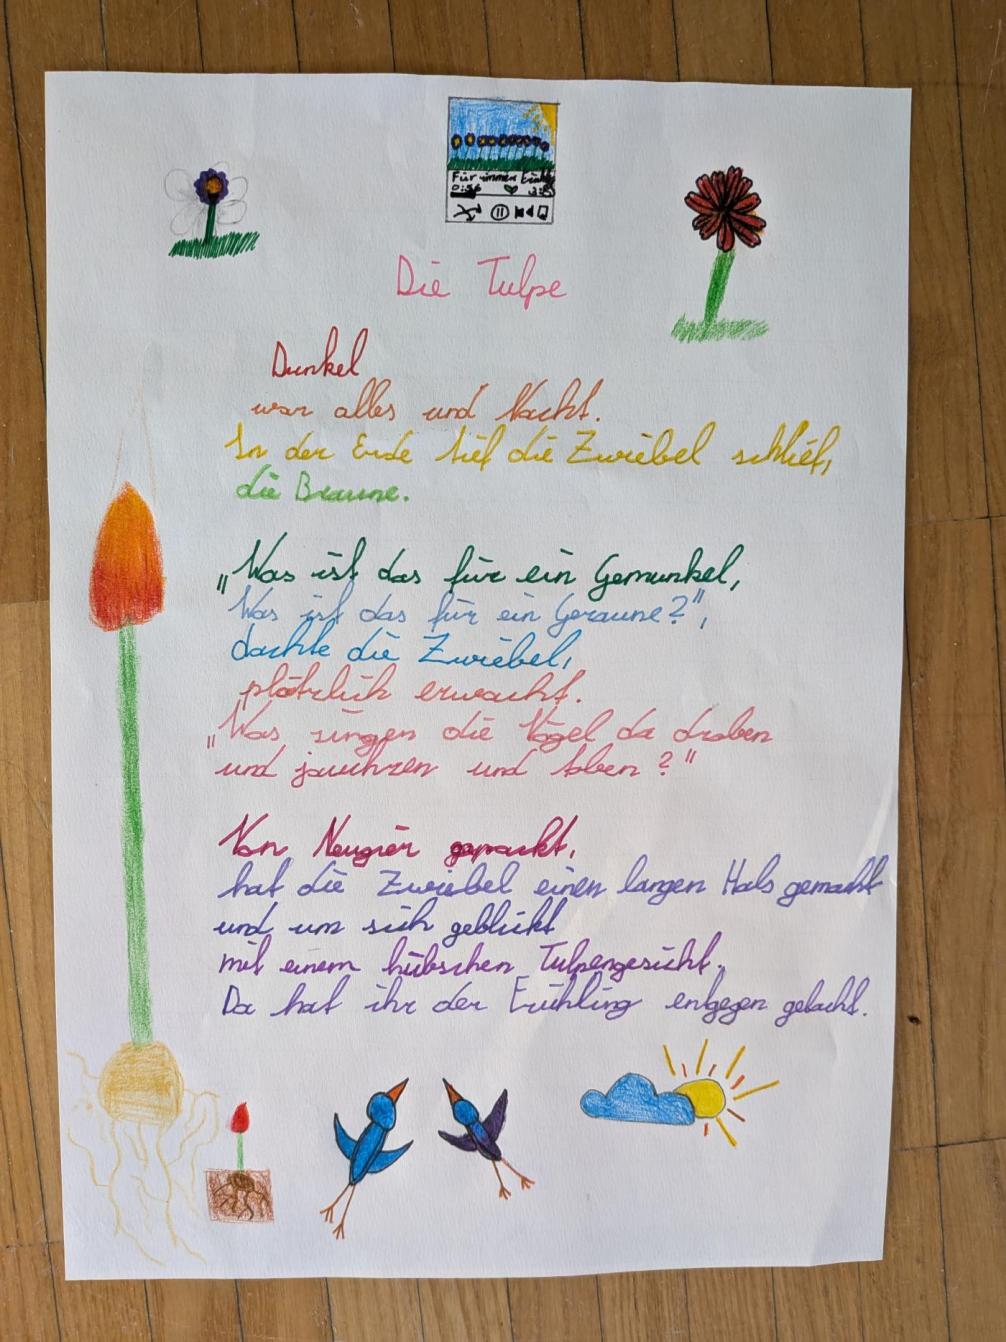 Für immer Frühling
0:56
Die Tulpe
Dunkel
war alles und Nacht.
In der Erde tief die Zwiebel schlief,
die Braune.
„Was ist das für ein Gemunkel,
Was ist das für ein Geraune?",
dachte die Zwiebel,
plötzlich erwacht.
„Was singen die Vögel da droben
und jauchzen und toben?"
Von Neugier gepackt,
hat die Zwiebel einen langen Hals gemacht
und um sich geblickt
mit einem hübschen Tulpengesicht.
Da hat ihr der Frühling entgegen gelacht.